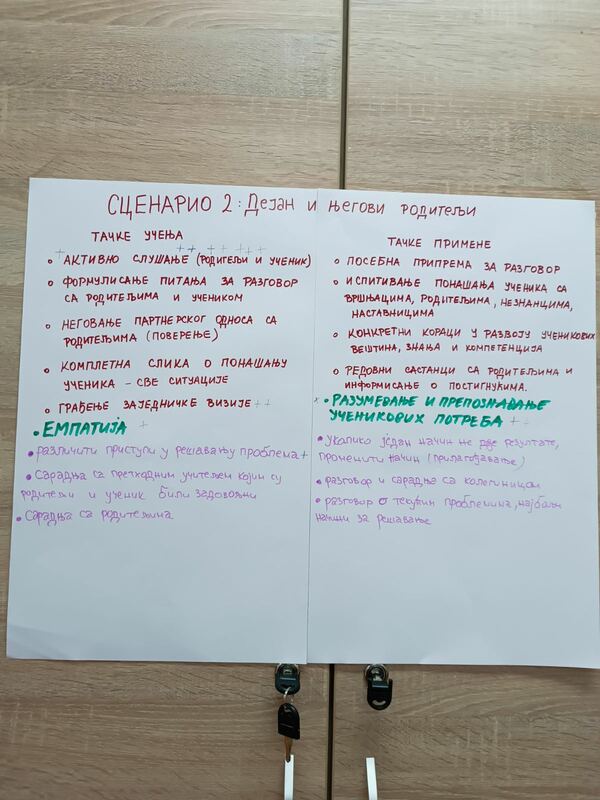 СЦЕНАРИО 2: Дејан и његови родитељи
ТАЧКЕ УЧЕЊА
+ ++ + + +
• АКТИВНО СЛУШАЊЕ (РОДИТЕЉИ И УЧЕНИК)
• ФОРМУЛИСАЊЕ ПИТАЊА ЗА РАЗГОВОР
СА РОДИТЕЉИМА И УЧЕНИКОМ
• НЕГОВАЊЕ ПАРТНЕРСКОГ ОДНОСА СА
РОДИТЕЉИМА (ПОВЕРЕЊЕ)
• КОМПЛЕТНА СЛИКА О ПОНАШАЊУ
УЧЕНИКА – СВЕ СИТУАЦИЈЕ
• ГРАЂЕЊЕ ЗАЈЕДНИЧКЕ ВИЗИЈЕ ++
• ЕМПАТИЈА +
• различити приступи у решавању проблема +
• Сарадња са претходним учитељем којим су
родитељи и ученик били задовољни
• Сарадња са родитељима
ТАЧКЕ ПРИМЕНЕ
• ПОСЕБНА ПРИПРЕМА ЗА РАЗГОВОР
• ИСПИТИВАЊЕ ПОНАШАЊА УЧЕНИКА СА
ВРШЊАЦИМА, РОДИТЕЉИМА, НЕЗНАНЦИМА,
НАСТАВНИЦИМА
• КОНКРЕТНИ КОРАЦИ У РАЗВОЈУ УЧЕНИКОВИХ
ВЕШТИНА, ЗНАЊА И КОМПЕТЕНЦИЈА
• РЕДОВНИ САСТАНЦИ СА РОДИТЕЉИМА И
ИНФОРМИСАЊЕ О ПОСТИГНУЋИМА.
x • РАЗУМЕВАЊЕ И ПРЕПОЗНАВАЊЕ
УЧЕНИКОВИХ ПОТРЕБА ++
• Уколико један начин не даје резултате,
променити начин (прилагођавање)
• разговор и сарадња са колегиницом
• разговор о текућим проблемима, најбољи
начини за решавање